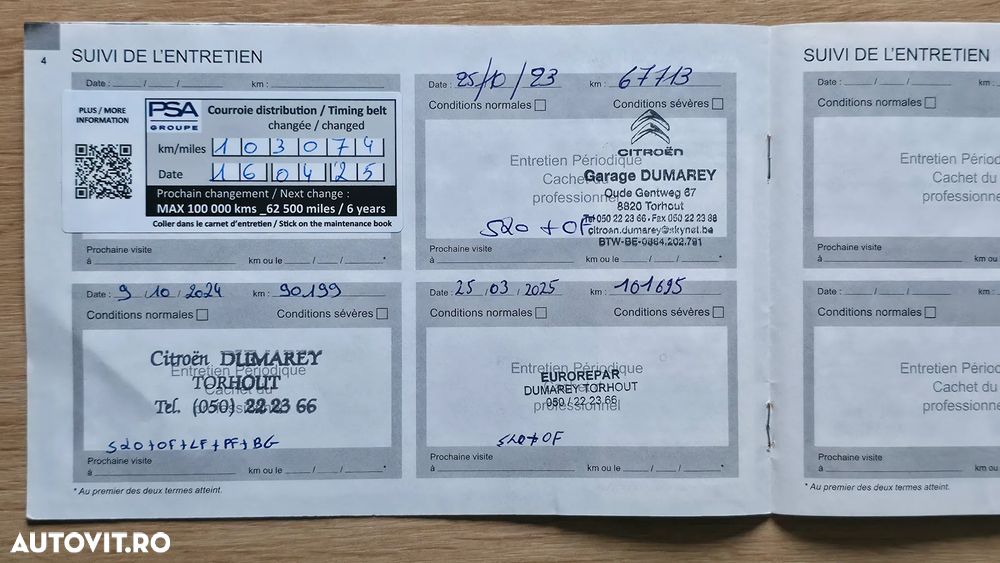 4
SUIVI DE L'ENTRETIEN
Date : / / km :
PLUS / MORE
INFORMATION
PSA
GROUPE
Courroie distribution / Timing belt
changée / changed
km/miles 103074
Date 160425
Prochain changement / Next change :
MAX 100 000 kms _62 500 miles / 6 years
Coller dans le carnet d'entretien / Stick on the maintenance book
Prochaine visite
à km ou le / / *
Date : 25/10/23 km : 67713
Conditions normales Conditions sévères
CITROËN
Entretien Périodique
Cachet du
professionnel
Garage DUMAREY
Oude Gentweg 67
8820 Torhout
Tel 050 22 23 66 - Fax 050 22 23 88
citroen.dumarey@skynet.be
BTW-BE-0864.202.791
520 + OF
Prochaine visite
à km ou le / / *
Date : 9 / 10 / 2024 km : 90199
Conditions normales Conditions sévères
Entretien Périodique
Cachet du
professionnel
Citroën DUMAREY
TORHOUT
Tel. (050) 22 23 66
520+OF+LF+PF+BG
Prochaine visite
à km ou le / / *
Date : 25 / 03 / 2025 km : 101695
Conditions normales Conditions sévères
Entretien Périodique
professionnel
EUROREPAR
DUMAREY TORHOUT
050 / 22.23.66
520+OF
Prochaine visite
à km ou le / / *
* Au premier des deux termes atteint.
SUIVI DE L'ENTRETIEN
Date : / / km :
Conditions normales
Entretien Pério
Cachet du
profession
Prochaine visite
à km ou
Date : / / km :
Conditions normales
Entretien Pério
Cachet du
profession
Prochaine visite
à km ou
* Au premier des deux termes atteint.
AUTOVIT.RO